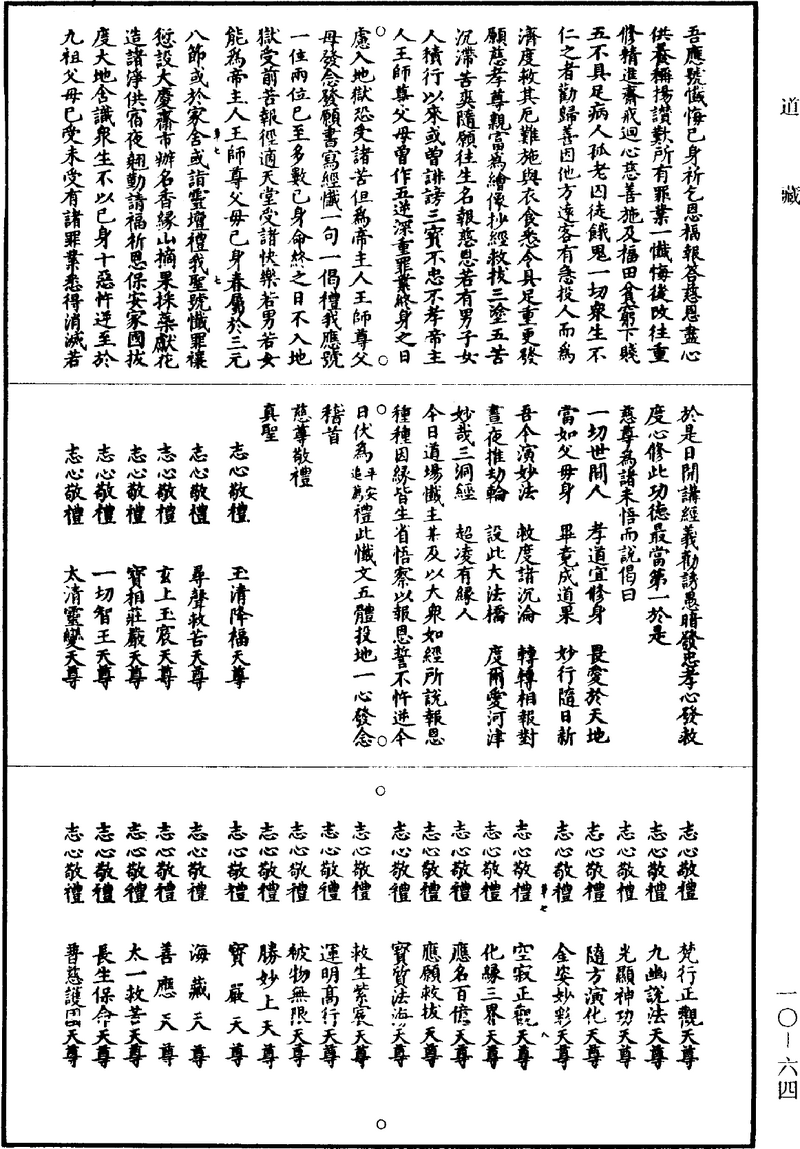 道藏
一〇—六四
吾應號懺悔已身祈乞恩福報答慈恩盡心
供養稱揚讚歎所有罪業一懺悔後改往重
修精進齋戒迴心慈善施及福田貧窮下賤
五不具足病人孤老囚徒餓鬼一切衆生不
仁之者勸歸善因他方遠客有急投人而爲
濟度救其厄難施與衣食悉令具足重更發
願慈孝尊親富爲繪像抄經救拔三塗五苦
沉滯苦爽隨願往生名報慈恩若有男子女
人積行以來或曾誹謗三寶不忠不孝帝主
人王師尊父母曾作五逆深重罪業終身之日
慮入地獄恐受諸苦但爲帝主人王師尊父
母發念發願書寫經懺一句一偈禮我應號
一位兩位已至多數已身命終之日不入地
獄受前苦報徑適天堂受諸快樂若男若女
能爲帝主人王師尊父母已身眷屬於三元
八節或於家舍或詣靈壇禮我聖號懺罪禳
愆設大慶齋市辦名香緣山摘果採藥獻花
造諸淨供宿夜翹勤請福祈恩保安家國拔
度大地含識衆生不以已身十惡忤逆至於
九祖父母已受未受有諸罪業悉得消滅若
於是日開講經義勸誘愚暗發忠孝心發救
度心修此功德最當第一於是
慈尊爲諸未悟而說偈曰
一切世間人　孝道宜修身　畏愛於天地
當如父母身　畢竟成道果　妙行隨日新
吾今演妙法　救度諸沉淪　轉轉相報對
晝夜推劫輪　設此大法橋　度爾愛河津
妙哉三洞經　超凌有緣人
今日道場懺主某及以大衆如經所說報恩
種種因緣皆生省悟察以報恩誓不忤逆今
日伏爲平安追薦禮此懺文五體投地一心發念
稽首
慈尊敬禮
真聖
志心敬禮　玉清降福天尊
志心敬禮　尋聲救苦天尊
志心敬禮　玄上玉宸天尊
志心敬禮　寶相莊嚴天尊
志心敬禮　一切智王天尊
志心敬禮　太清靈變天尊
志心敬禮　梵行正觀天尊
志心敬禮　九幽說法天尊
志心敬禮　光顯神功天尊
志心敬禮　隨方演化天尊
志心敬禮　金姿妙彩天尊
志心敬禮　空寂正觀天尊
志心敬禮　化緣三界天尊
志心敬禮　應名百億天尊
志心敬禮　應願救拔天尊
志心敬禮　寶質法海天尊
志心敬禮　救生紫宸天尊
志心敬禮　運明高行天尊
志心敬禮　被物無限天尊
志心敬禮　勝妙上天尊
志心敬禮　寶嚴天尊
志心敬禮　海藏天尊
志心敬禮　善應天尊
志心敬禮　太一救苦天尊
志心敬禮　長生保命天尊
志心敬禮　普慈護國天尊